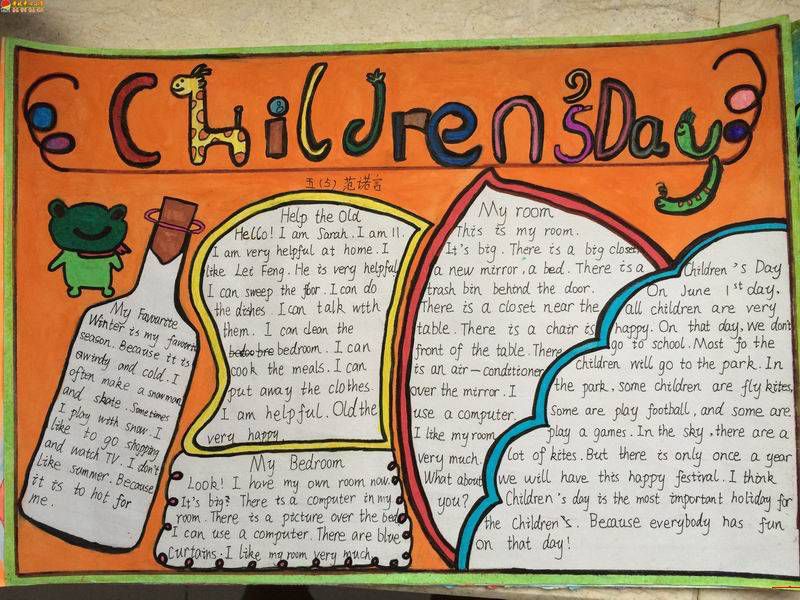 Children's Day
五(5) 范诺言
My Favourite
Winter is my favourite
season. Because it is
windy and cold. I
often make a snowman
and skate. Sometimes
I play with snow. I
like to go shopping
and watch TV. I don't
like summer. Because
it is to hot for
me.
Help the Old
Hello! I am Sarah. I am 11.
I am very helpful at home. I
like Lei Feng. He is very helpful
I can sweep the floor. I can do
the dishes. I can talk with
them. I can clean the
bedroom. I can
cook the meals. I can
put away the clothes.
I am helpful. Old the
very happy.
My Bedroom
Look! I have my own room now.
It's big? There is a computer in my
room. There is a picture over the bed
I can use a computer. There are blue
curtains. I like my room very much
My room
This is my room.
It's big. There is a big closet
a new mirror, a bed. There is a
trash bin behind the door.
There is a closet near the
table. There is a chair is
front of the table. There
is an air-conditioner
over the mirror. I
use a computer.
I like my room
very much.
What about
you?
Children's Day
On June 1st day.
all children are very
happy. On that day, we don't
go to school. Most fo the
children will go to the park. In
the park, some children are fly kites,
Some are play football, and some are
play a games. In the sky, there are a
lot of kites. But there is only once a year
we will have this happy festival. I think
Children's day is the most important holiday for
the children's. Because everybody has fun
on that day!